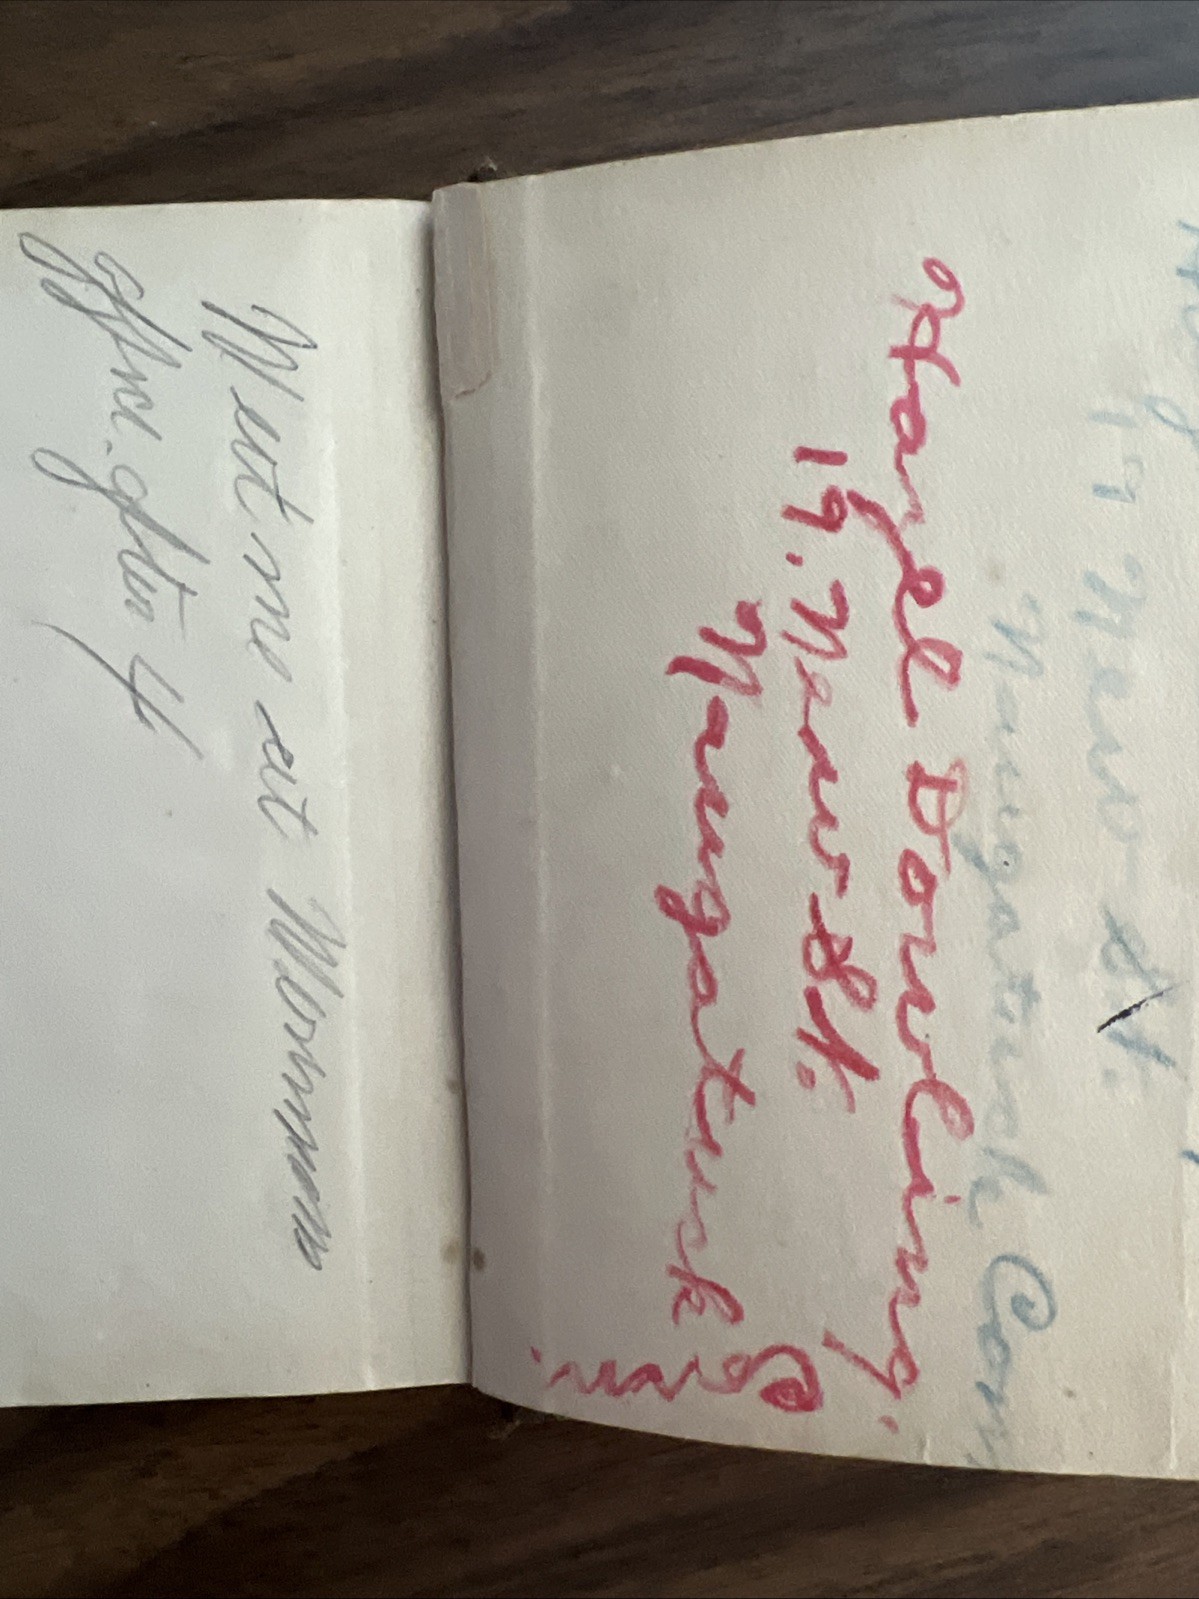 19 New St.
Naugatuck Conn
Hazel Dowling.
19. New St.
Naugatuck Conn.
Meet me at
office after 4